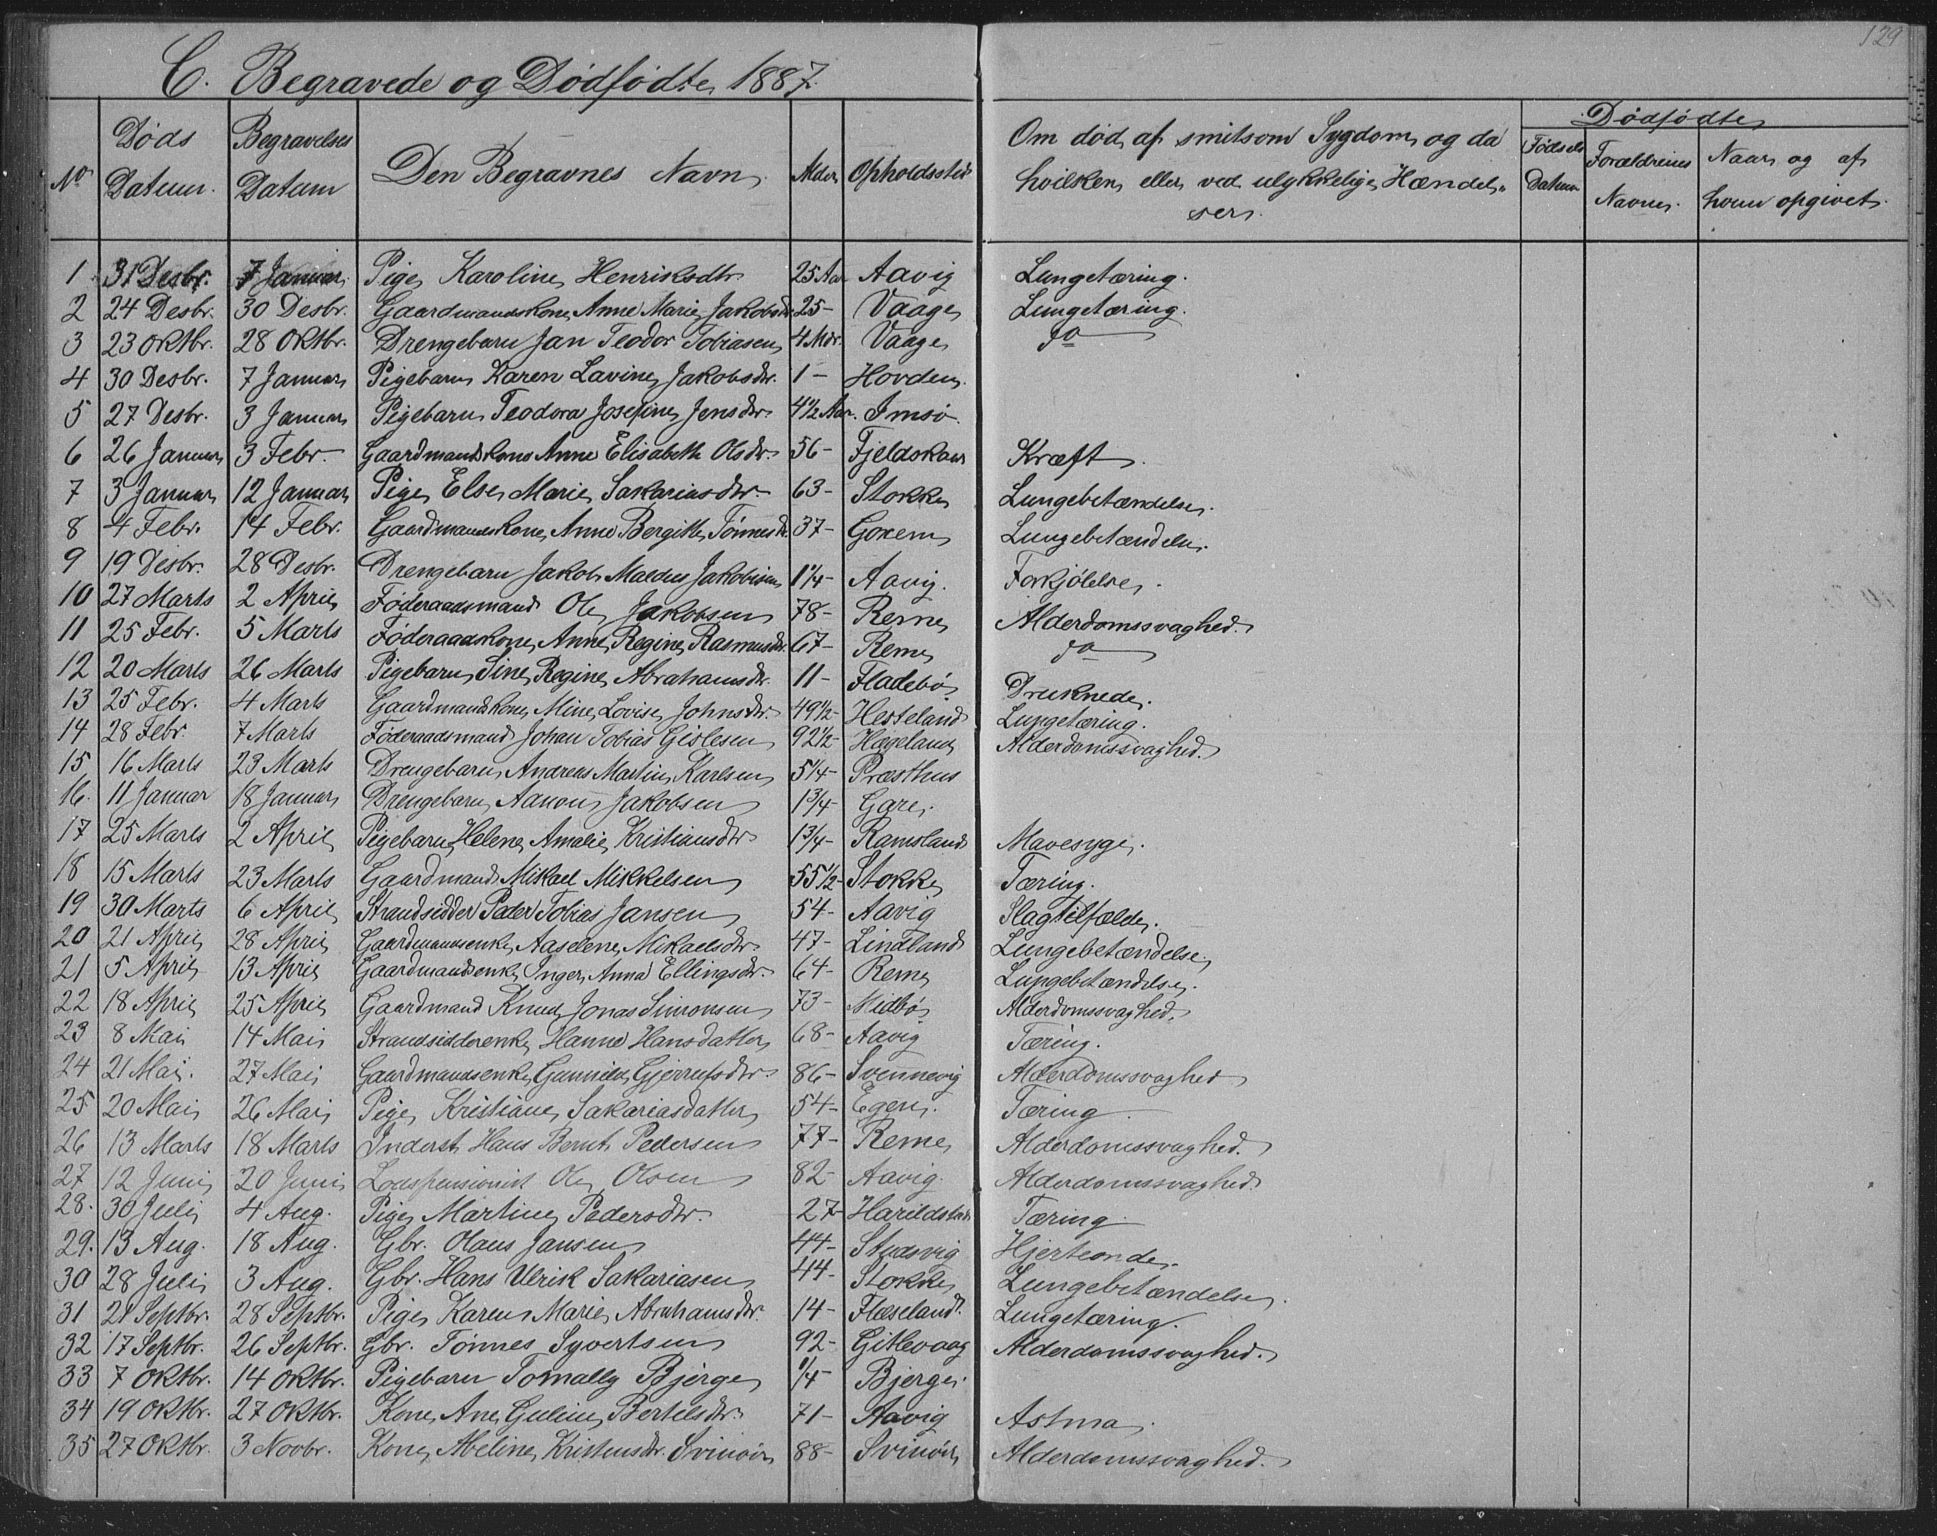 129
C. Begravede og Dødfødte, 1887.
No Døds Datum. Begravelses Datum Den Begravnes Navn. Alder Opholdssted Om død af smitsom Sygdom, og da hvilken, eller ved ulykkelige Hændelser. Dødfødte Fødsels Datum Forældrenes Navne. Naar og af hvem opgivet.
1 31 Desbr. 7 Januar Pige Karoline Henriksdtr 25 Aar Aavig Lungetæring.
2 24 Desbr. 30 Desbr. Gaardmandskone Anne Marie Jakobsdr 25 - Vaage Lungetæring.
3 23 Oktbr. 28 Oktbr. Drengebarn Jan Teodor Tobiasen 4 Mdr. Vaage do
4 30 Desbr. 7 Januar Pigebarn Karen Lavine Jakobsdr. 1 - Hovden.
5 27 Desbr. 3 Januar Pigebarn Teodora Josefine Jensdr 4 1/2 Aar. Imsø
6 26 Januar 3 Febr. Gaardmandskone Anne Elisabeth Olsdr. 56 - Fjeldskaar Kræft.
7 3 Januar 12 Januar Pige Else Marie Sakariasdr 63 - Stokke Lungebetændelse.
8 4 Febr. 14 Febr. Gaardmandskone Anne Bergitte Tønnesdr. 37 - Goxem Lungebetændelse.
9 19 Desbr. 28 Desbr. Drengebarn Jakob Maldus Jakobsen 1 1/4 - Aavig. Forkjølelse.
10 27 Marts 2 April Føderaadsmand Ole Jakobsen 78 - Reme Alderdomssvaghed.
11 25 Febr. 5 Marts Føderaadskone Anne Regine Rasmusdr 67 - Reme do
12 20 Marts 26 Marts Pigebarn Sine Regine Abrahamsdr. 11 - Fladebø Druknede.
13 25 Febr. 4 Marts Gaardmandskone Mine Lovise Johnsdr. 49 1/2 - Hesteland Lungetæring.
14 28 Febr 7 Marts Føderaadsmand Johan Tobias Gislesen 92 1/2 - Hageland Alderdomssvaghed.
15 16 Marts 23 Marts Drengebarn Andreas Martin Karlsen 5 1/4 - Præsthus
16. 11 Januar 18 Januar Drengebarn Aanon Jakobsen 1 3/4 - Gare.
17 25 Marts 2 April Pigebarn Helene Amalie Kristiansdr 1 3/4 - Ramsland Mavesyge.
18 15 Marts 23 Marts Gaardmand Mikael Mikkelsen 55 1/2 - Stokke Tæring.
19 30 Marts 6 April Strandsidder Peder Tobias Jansen 54 - Aavig Slagtilfælde.
20 21 April 28 April Gaardmandsenke Aaselene Mikaelsdr 47 - Lindland Lungebetændelse.
21 5 April 13 April Gaardmandsenke Inger Anna Ellingsdr. 64 - Reme Lungebetændelse.
22 18 April 25 April Gaardmand Knud Jonas Simonsen 73 - Midbø Alderdomssvaghed.
23 8 Mai 14 Mai Strandsidderenke Hanne Hansdatter 68 - Aavig Tæring.
24 21 Mai. 27 Mai Gaardmandsenke Gunnild Gjerrufsdr. 86 - Svennevig Alderdomssvaghed
25 20 Mai 26 Mai Pige Kristiane Sakariasdatter 54 - Egen. Tæring.
26 13 Marts 18 Marts Inderst Hans Bernt Pedersen 77 - Reme Alderdomssvaghed.
27 12 Juni 20 Juni Lodspensionist Ole Olsen 82 - Aavig. Alderdomssvaghed.
28. 30 Juli 4 Aug. Pige Martine Pedersdr. 27 - Tæring
29. 13 Aug. 18 Aug. Gbr. Olaus Jansen 44 - Studsvig Hjerteonde.
30 28 Juli 3 Aug. Gbr. Hans Ulrik Sakariasen 44 - Stokke Lungebetændelse.
31 21 Septbr. 28 Septbr. Pige Karen Marie Abrahamsdr. 14 - Flæseland. Lungetæring.
32 17 Septbr. 26 Septbr. Gbr. Tønnes Syvertsen 92 - Gitlevaag Alderdomssvaghed.
33 7 Oktbr. 14 Oktbr. Pigebarn Tomally Bjerge 1/4 - Bjerge.
34 19 Oktbr. 27 Oktbr. Kone Ane Guline Bertelsdr. 71 - Aavig Astma.
35 27 Oktbr. 3 Novbr. Kone Abeline Kristensdr. Svinøen 88 - Svinøen Alderdomssvaghed.